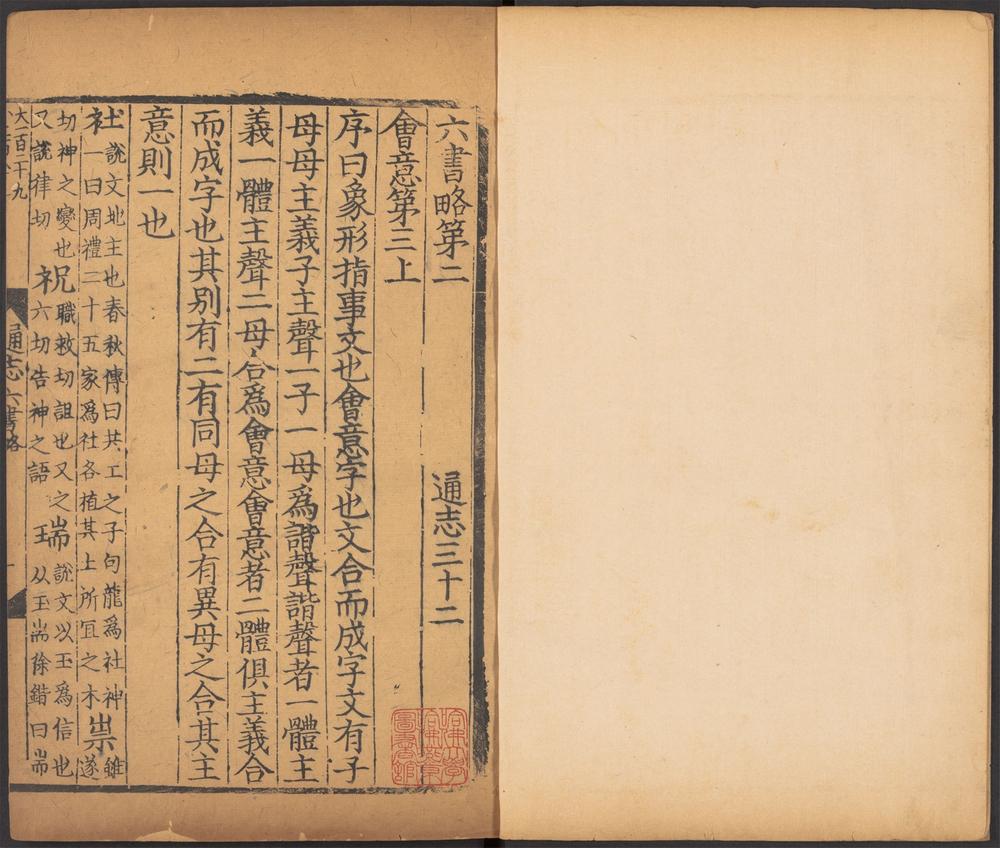 六書略第二 通志三十二
會意第三上
序曰象形指事文也會意字也文合而成字文有子
母母主義子主聲一子一母爲諧聲諧聲者一體主
義一體主聲二母合爲會意會意者二體俱主義合
而成字也其别有二有同母之合有異母之合其主
意則一也
社說文地主也春秋傳曰共工之子句龍爲社神一曰周禮二十五家爲社各植其土所宜之木祟雖遂
切神之變也又説律切祝職救切詛也又之六切告神之語瑞說文以玉爲信也从玉耑徐鍇曰耑
大一百二十九
通志六書略 一